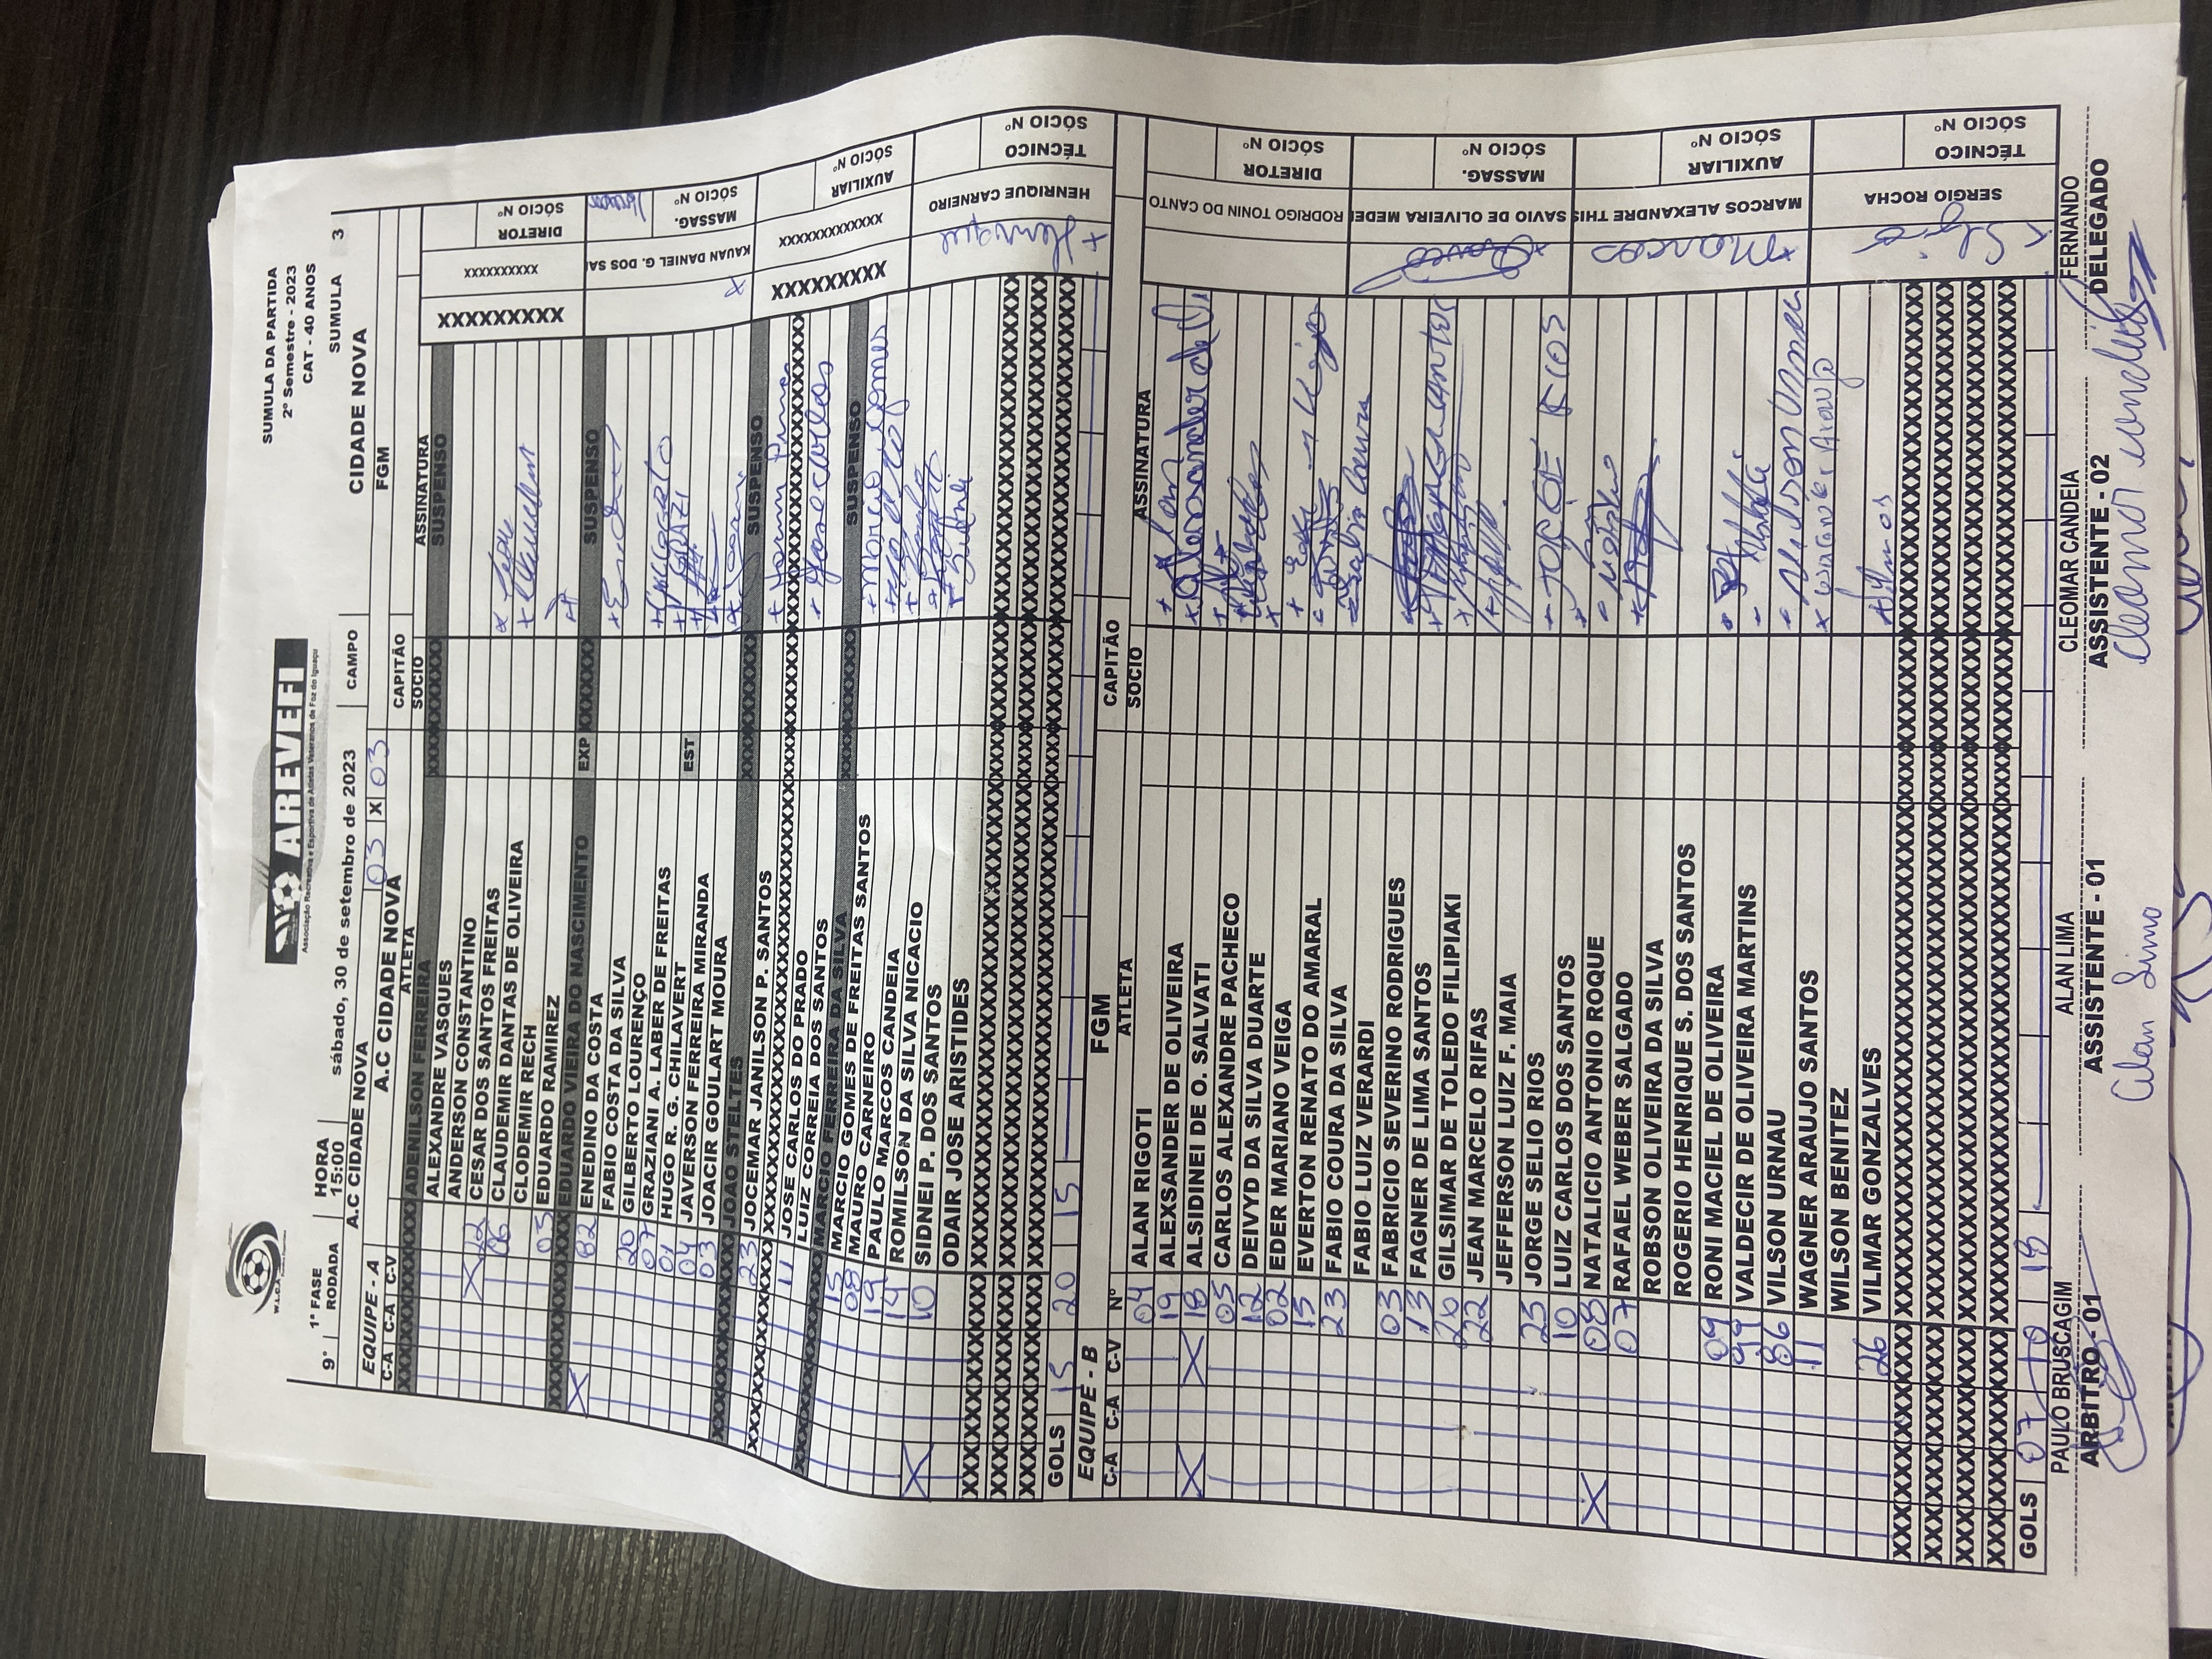 W.L.C.A
AREVEFI
Associação Recreativa e Esportiva de Atletas Veteranos de Foz do Iguaçu
SUMULA DA PARTIDA
2º Semestre - 2023
CAT - 40 ANOS
9ª 1ª FASE HORA
RODADA 15:00 sábado, 30 de setembro de 2023 CAMPO CIDADE NOVA SUMULA 3
A.C CIDADE NOVA 03 X 03 FGM
EQUIPE - A A.C CIDADE NOVA CAPITÃO
C-A C-A C-V ATLETA SOCIO ASSINATURA
ADENILSON FERREIRA SUSPENSO
ALEXANDRE VASQUES
ANDERSON CONSTANTINO
22 CESAR DOS SANTOS FREITAS
06 CLAUDEMIR DANTAS DE OLIVEIRA
CLODEMIR RECH
03 EDUARDO RAMIREZ
EDUARDO VIEIRA DO NASCIMENTO EXP SUSPENSO
82 ENEDINO DA COSTA
FABIO COSTA DA SILVA
20 GILBERTO LOURENÇO
07 GRAZIANI A. LABER DE FREITAS
01 HUGO R. G. CHILAVERT EST
04 JAVERSON FERREIRA MIRANDA
03 JOACIR GOULART MOURA
JOAO STELTES SUSPENSO
23 JOCEMAR JANILSON P. SANTOS
XXXXXXXXXXXXXXXXXXXXXXXX
11 JOSE CARLOS DO PRADO Jose carlos
LUIZ CORREIA DOS SANTOS
MARCIO FERREIRA DA SILVA SUSPENSO
15 MARCIO GOMES DE FREITAS SANTOS Marcio Gomes
08 MAURO CARNEIRO
19 PAULO MARCOS CANDEIA
14 ROMILSON DA SILVA NICACIO
10 SIDNEI P. DOS SANTOS Sidnei
ODAIR JOSE ARISTIDES
GOLS 15 20 15
XXXXXXXXX XXXXXXXXXX DIRETOR SÓCIO Nº
KAUAN DANIEL G. DOS SAN MASSAG. SÓCIO Nº
XXXXXXXXX XXXXXXXXXXXX AUXILIAR SÓCIO Nº
Henrique HENRIQUE CARNEIRO TÉCNICO SÓCIO Nº
EQUIPE - B FGM CAPITÃO
C-A C-A C-V Nº ATLETA SOCIO ASSINATURA
04 ALAN RIGOTI Alan
19 ALEXSANDER DE OLIVEIRA Alexsander de O.
18 ALSIDINEI DE O. SALVATI
05 CARLOS ALEXANDRE PACHECO
12 DEIVYD DA SILVA DUARTE
02 EDER MARIANO VEIGA
15 EVERTON RENATO DO AMARAL
23 FABIO COURA DA SILVA
FABIO LUIZ VERARDI
03 FABRICIO SEVERINO RODRIGUES
13 FAGNER DE LIMA SANTOS
20 GILSIMAR DE TOLEDO FILIPIAKI
22 JEAN MARCELO RIFAS
JEFFERSON LUIZ F. MAIA
25 JORGE SELIO RIOS JORGE RIOS
10 LUIZ CARLOS DOS SANTOS
08 NATALICIO ANTONIO ROQUE
07 RAFAEL WEBER SALGADO
ROBSON OLIVEIRA DA SILVA
ROGERIO HENRIQUE S. DOS SANTOS
09 RONI MACIEL DE OLIVEIRA
99 VALDECIR DE OLIVEIRA MARTINS
86 VILSON URNAU Vilson Urnau
11 WAGNER ARAUJO SANTOS Wagner Araujo
WILSON BENITEZ
26 VILMAR GONZALVES Vilmar
GOLS 07 10 18
RODRIGO TONIN DO CANTO DIRETOR SÓCIO Nº
SAVIO DE OLIVEIRA MEDEI MASSAG. SÓCIO Nº
Marcos MARCOS ALEXANDRE THIS AUXILIAR SÓCIO Nº
Sergio SERGIO ROCHA TÉCNICO SÓCIO Nº
PAULO BRUSCAGIM ALAN LIMA CLEOMAR CANDEIA FERNANDO
ARBITRO - 01 ASSISTENTE - 01 ASSISTENTE - 02 DELEGADO
Alan Lima Cleomar Candeia